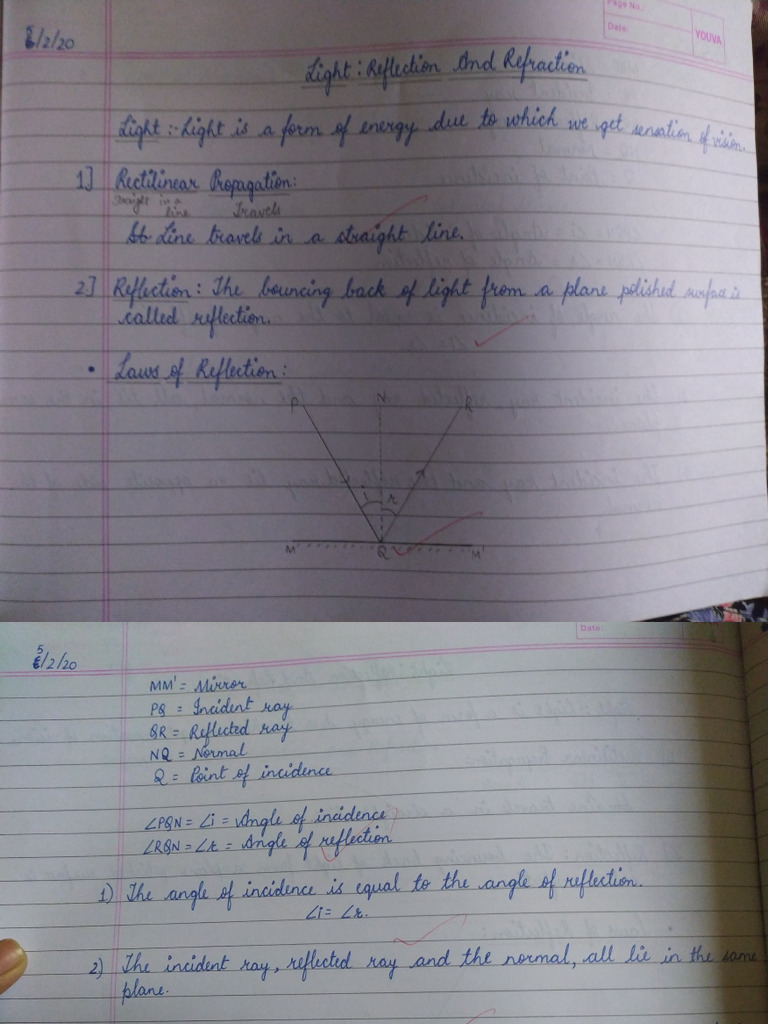 Page No.
Date:
YOUVA
5/2/20
Light : Reflection And Refraction
Light :- Light is a form of energy due to which we get sensation of vision.
1] Rectilinear Propagation:
straight in a line Travels
Line travels in a straight line.
2] Reflection : The bouncing back of light from a plane polished surface is
called reflection.
• Laws of Reflection :
P N R
i r
M Q M'
Date:
5/2/20
MM' = Mirror
PQ = Incident ray
QR = Reflected ray
NQ = Normal
Q = Point of incidence
∠PQN = ∠i = Angle of incidence
∠RQN = ∠r = Angle of reflection
1) The angle of incidence is equal to the angle of reflection.
∠i = ∠r.
2) The incident ray, reflected ray and the normal, all lie in the same
plane.